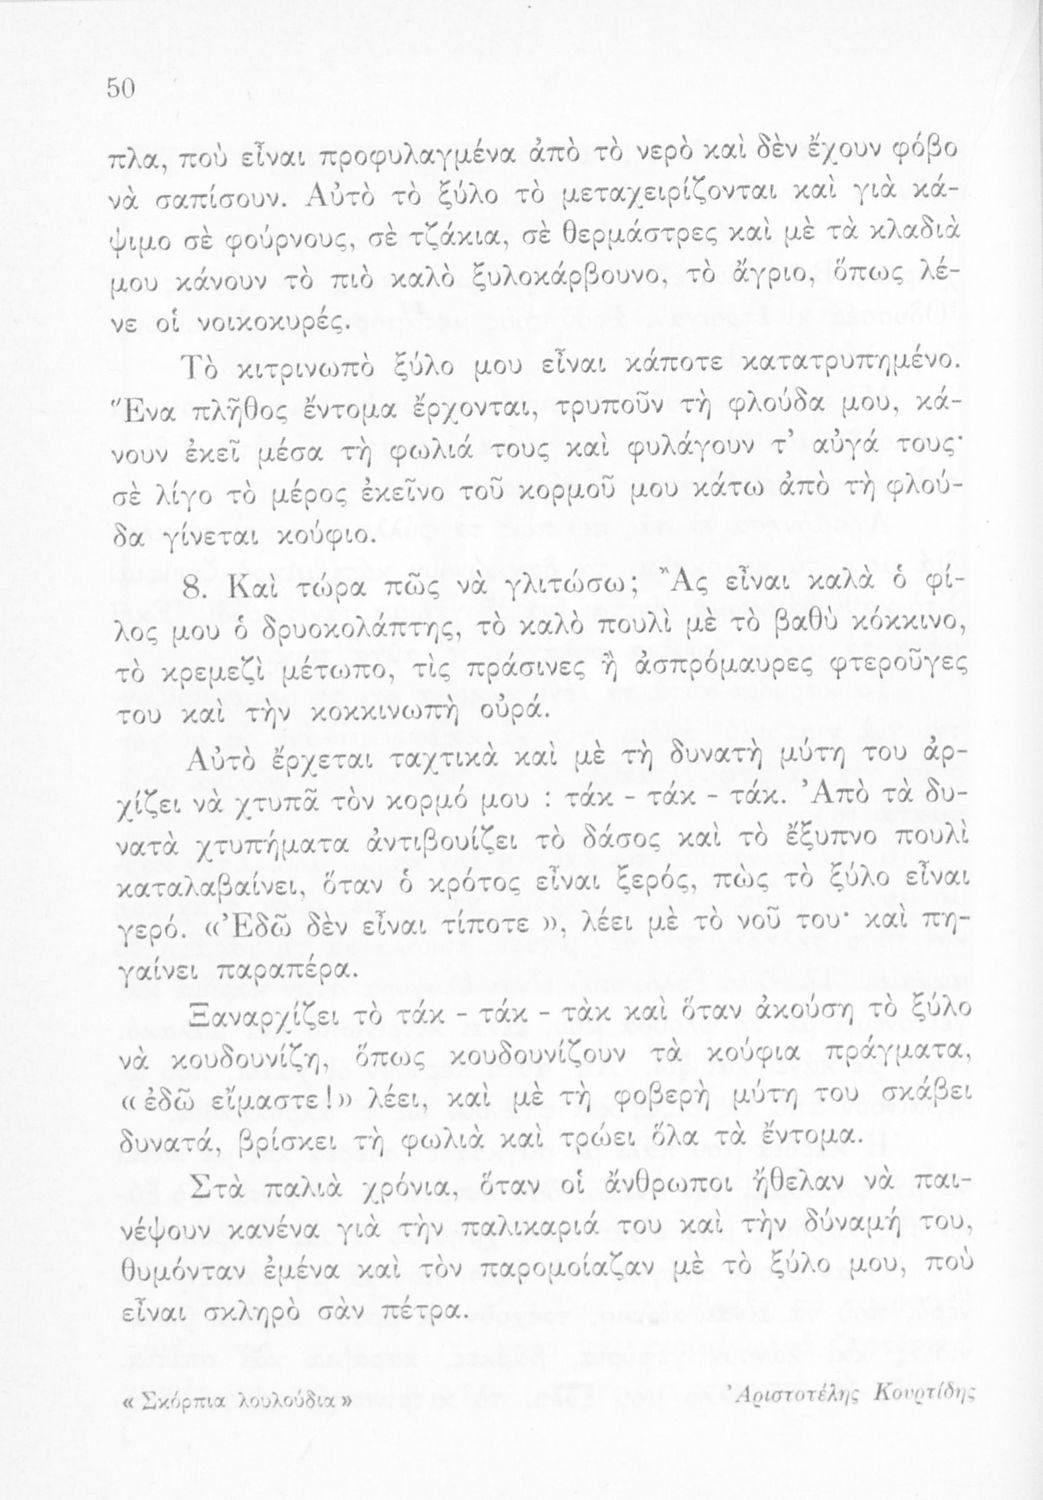 50
πλα, ποὺ εἶναι προφυλαγμένα ἀπὸ τὸ νερὸ καὶ δὲν ἔχουν φόβο
νὰ σαπίσουν. Αὐτὸ τὸ ξύλο τὸ μεταχειρίζονται καὶ γιὰ κά-
ψιμο σὲ φούρνους, σὲ τζάκια, σὲ θερμάστρες καὶ μὲ τὰ κλαδιὰ
μου κάνουν τὸ πιὸ καλὸ ξυλοκάρβουνο, τὸ ἄγριο, ὅπως λέ-
νε οἱ νοικοκυρές.
Τὸ κιτρινωπὸ ξύλο μου εἶναι κάποτε κατατρυπημένο.
Ἕνα πλῆθος ἔντομα ἔρχονται, τρυποῦν τὴ φλούδα μου, κά-
νουν ἐκεῖ μέσα τὴ φωλιά τους καὶ φυλάγουν τ’ αὐγά τους·
σὲ λίγο τὸ μέρος ἐκεῖνο τοῦ κορμοῦ μου κάτω ἀπὸ τὴ φλού-
δα γίνεται κούφιο.
8. Καὶ τώρα πῶς νὰ γλιτώσω; Ἂς εἶναι καλὰ ὁ φί-
λος μου ὁ δρυοκολάπτης, τὸ καλὸ πουλὶ μὲ τὸ βαθὺ κόκκινο,
τὸ κρεμεζὶ μέτωπο, τὶς πράσινες ἢ ἀσπρόμαυρες φτεροῦγες
του καὶ τὴν κοκκινωπὴ οὐρά.
Αὐτὸ ἔρχεται ταχτικὰ καὶ μὲ τὴ δυνατὴ μύτη του ἀρ-
χίζει νὰ χτυπᾶ τὸν κορμό μου : τάκ - τάκ - τάκ. Ἀπὸ τὰ δυ-
νατὰ χτυπήματα ἀντιβουίζει τὸ δάσος καὶ τὸ ἔξυπνο πουλὶ
καταλαβαίνει, ὅταν ὁ κρότος εἶναι ξερός, πὼς τὸ ξύλο εἶναι
γερό. «Ἐδῶ δὲν εἶναι τίποτε », λέει μὲ τὸ νοῦ του· καὶ πη-
γαίνει παραπέρα.
Ξαναρχίζει τὸ τάκ - τάκ - τὰκ καὶ ὅταν ἀκούση τὸ ξύλο
νὰ κουδουνίζη, ὅπως κουδουνίζουν τὰ κούφια πράγματα,
«ἐδῶ εἴμαστε!» λέει, καὶ μὲ τὴ φοβερὴ μύτη του σκάβει
δυνατά, βρίσκει τὴ φωλιὰ καὶ τρώει ὅλα τὰ ἔντομα.
Στὰ παλιὰ χρόνια, ὅταν οἱ ἄνθρωποι ἤθελαν νὰ παι-
νέψουν κανένα γιὰ τὴν παλικαριά του καὶ τὴν δύναμή του,
θυμόνταν ἐμένα καὶ τὸν παρομοίαζαν μὲ τὸ ξύλο μου, ποὺ
εἶναι σκληρὸ σὰν πέτρα.
« Σκόρπια λουλούδια » Ἀριστοτέλης Κουρτίδης